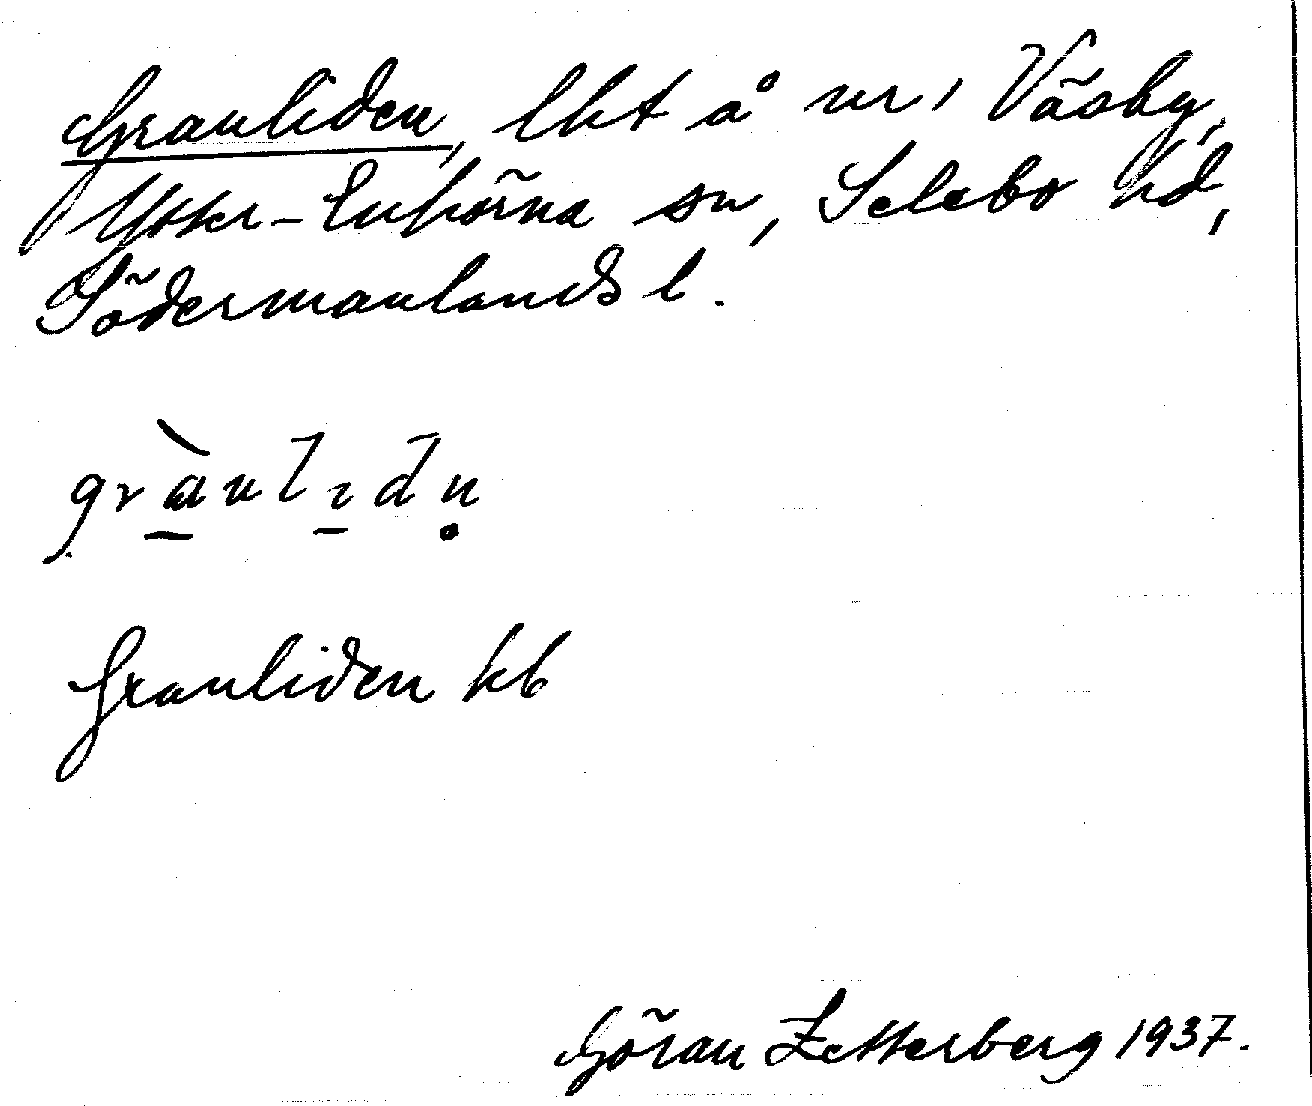 Granliden, lht å nr 1 Väsby,
Ytter-Enhörna sn, Selebo hd,
Södermanlands l.
grà̱nlı̱dṇ
Granliden kb
Göran Zetterberg 1937.